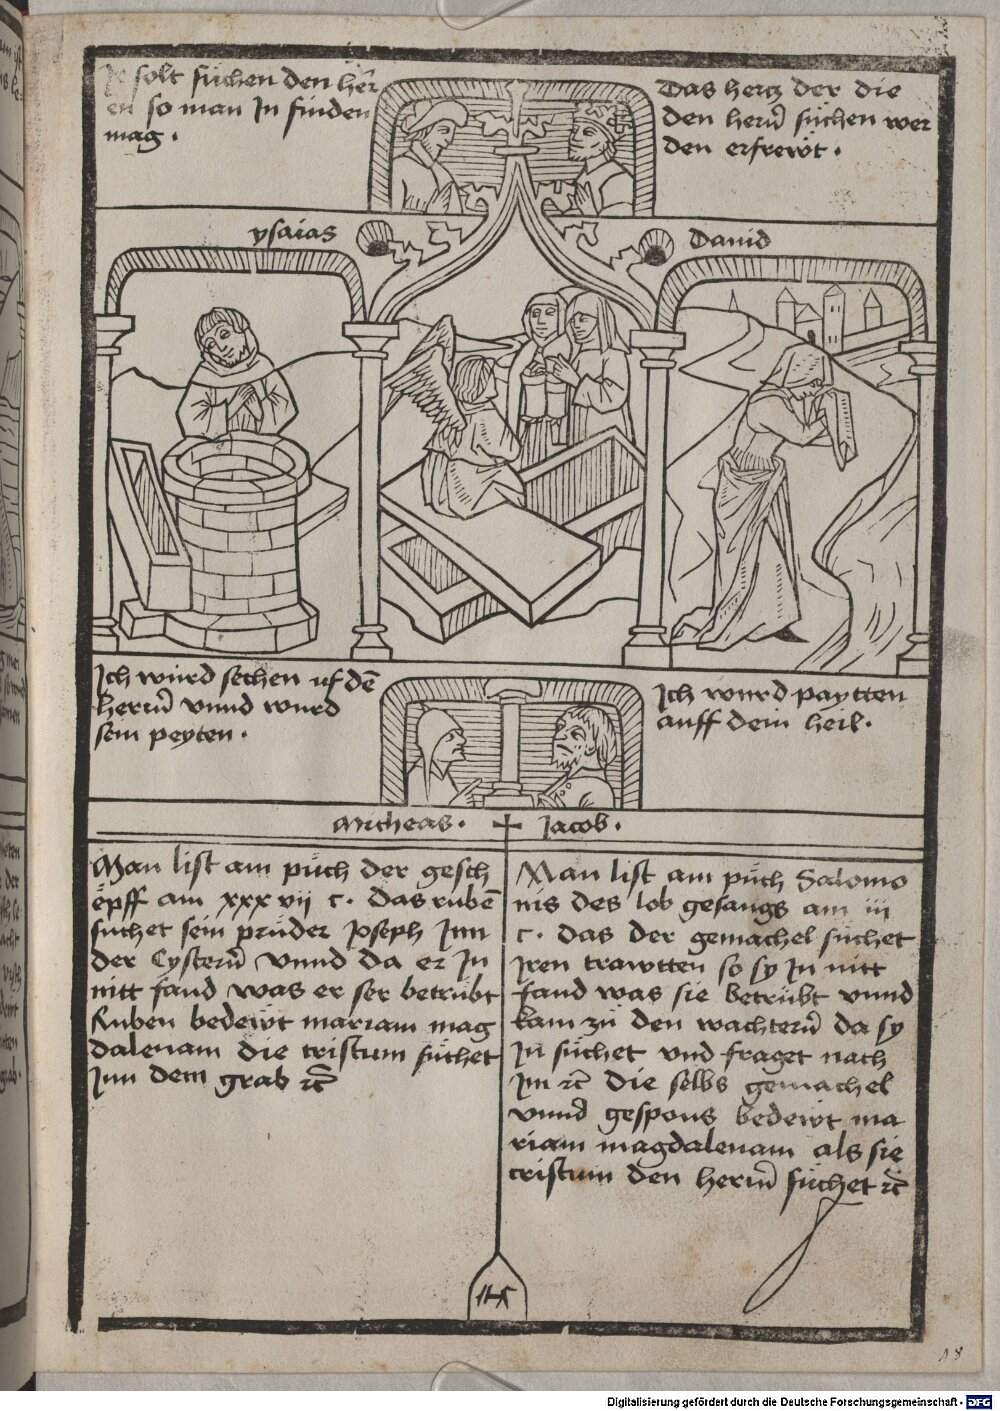 Ir solt suchen den hēr
en so man In finden
mag .
Das hertz der die
den herñ süchen wer
den erfrewt .
ysaias
Dauid
Ich würd sechen uf dē
herñ vnnd wurd
sein peyten .
Ich wurd paytten
auff dein heil .
Micheas . Jacob .
Man list am püch der gesch
epff am xxx vii c . das rubē
suchet sein prüder Joseph Inn
der Cysterñ vnnd da er In
nitt fand was er ser betrübt
Ruben bedewt mariam mag
dalenam die cristum suchet
Inn dem grab
Man list am püch Salomo
nis des lob gesangs am iii
c . das der gemachel süchet
Iren trawtten so sy In nitt
fand was sie betrübt vnnd
kam zü den wachterñ da sy
In süchet vnd fraget nach
Im die selbs gemachel
vnnd gespons bedewt ma
riam magdalenam als sie
cristum den herñ süchet
18
Digitalisierung gefördert durch die Deutsche Forschungsgemeinschaft - DFG